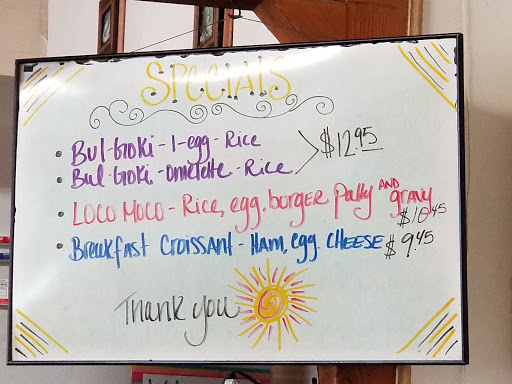 SPECIALS
• Bul-Groki-1-egg-Rice
• Bul-Groki-omelette-Rice $12.95
• LOCO MOCO - Rice, egg, borger patty AND gravy $10.45
• Breakfast Croissant - Ham, egg, CHEESE $9.45
Thank you